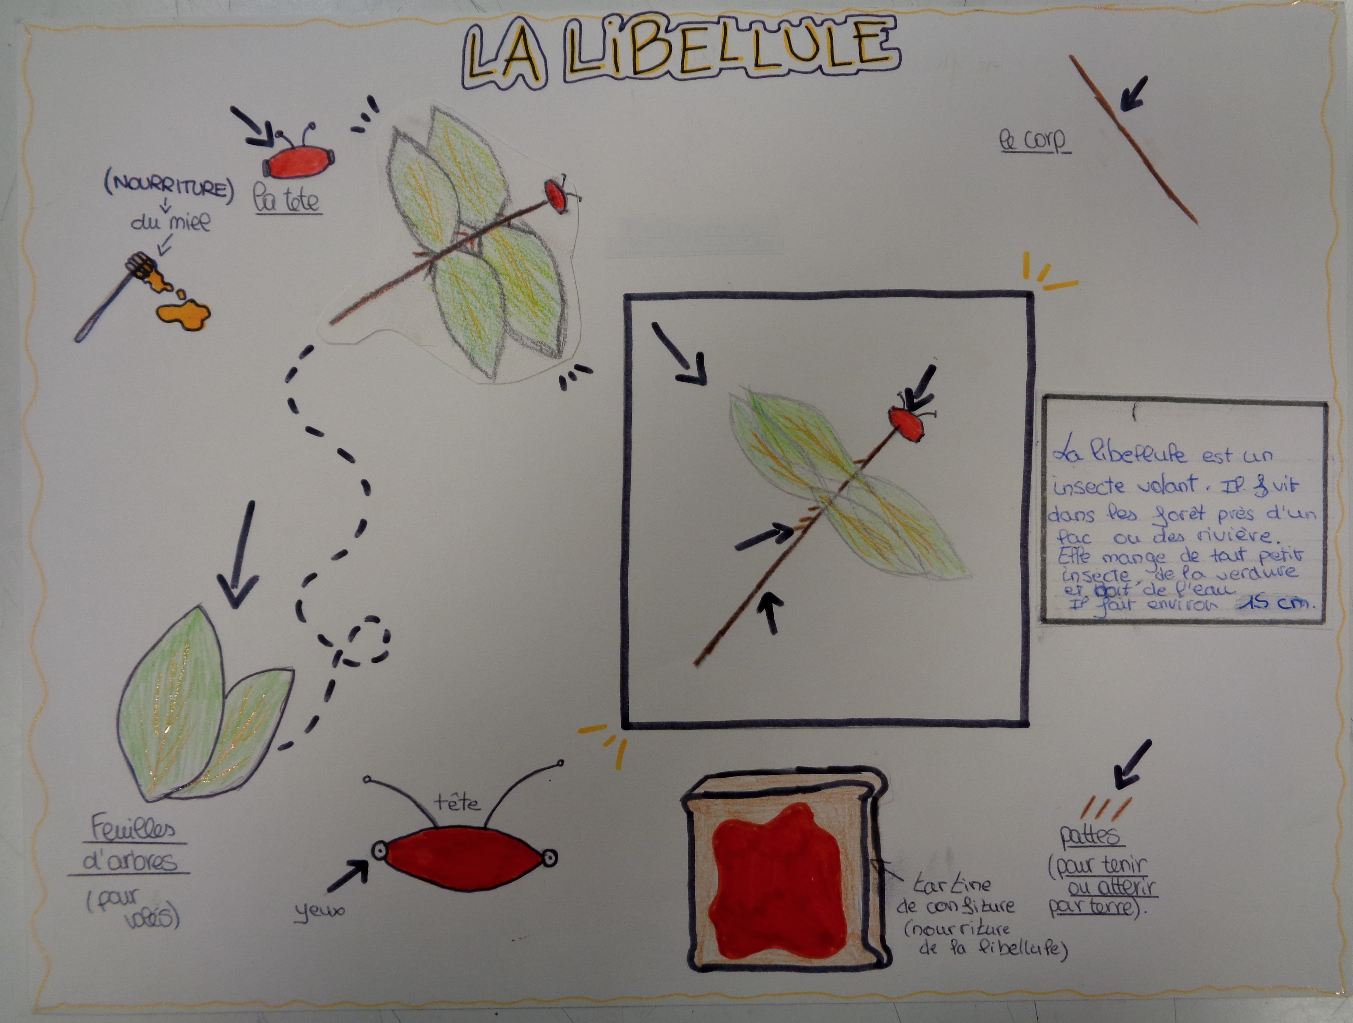 LA LiBELLULE
le corp
la tete
(NOURRITURE)
du miel
La libellule est un
insecte volant. Il vit
dans les forêt près d'un
lac ou des rivière.
Elle mange de tout petit
insecte, de la verdure
et boit de l'eau
Il fait environ 15 cm.
Feuilles
d'arbres
(pour
volés)
tête
yeux
tartine
de confiture
(nourriture
de la libellule)
pattes
(pour tenir
ou atterir
par terre).